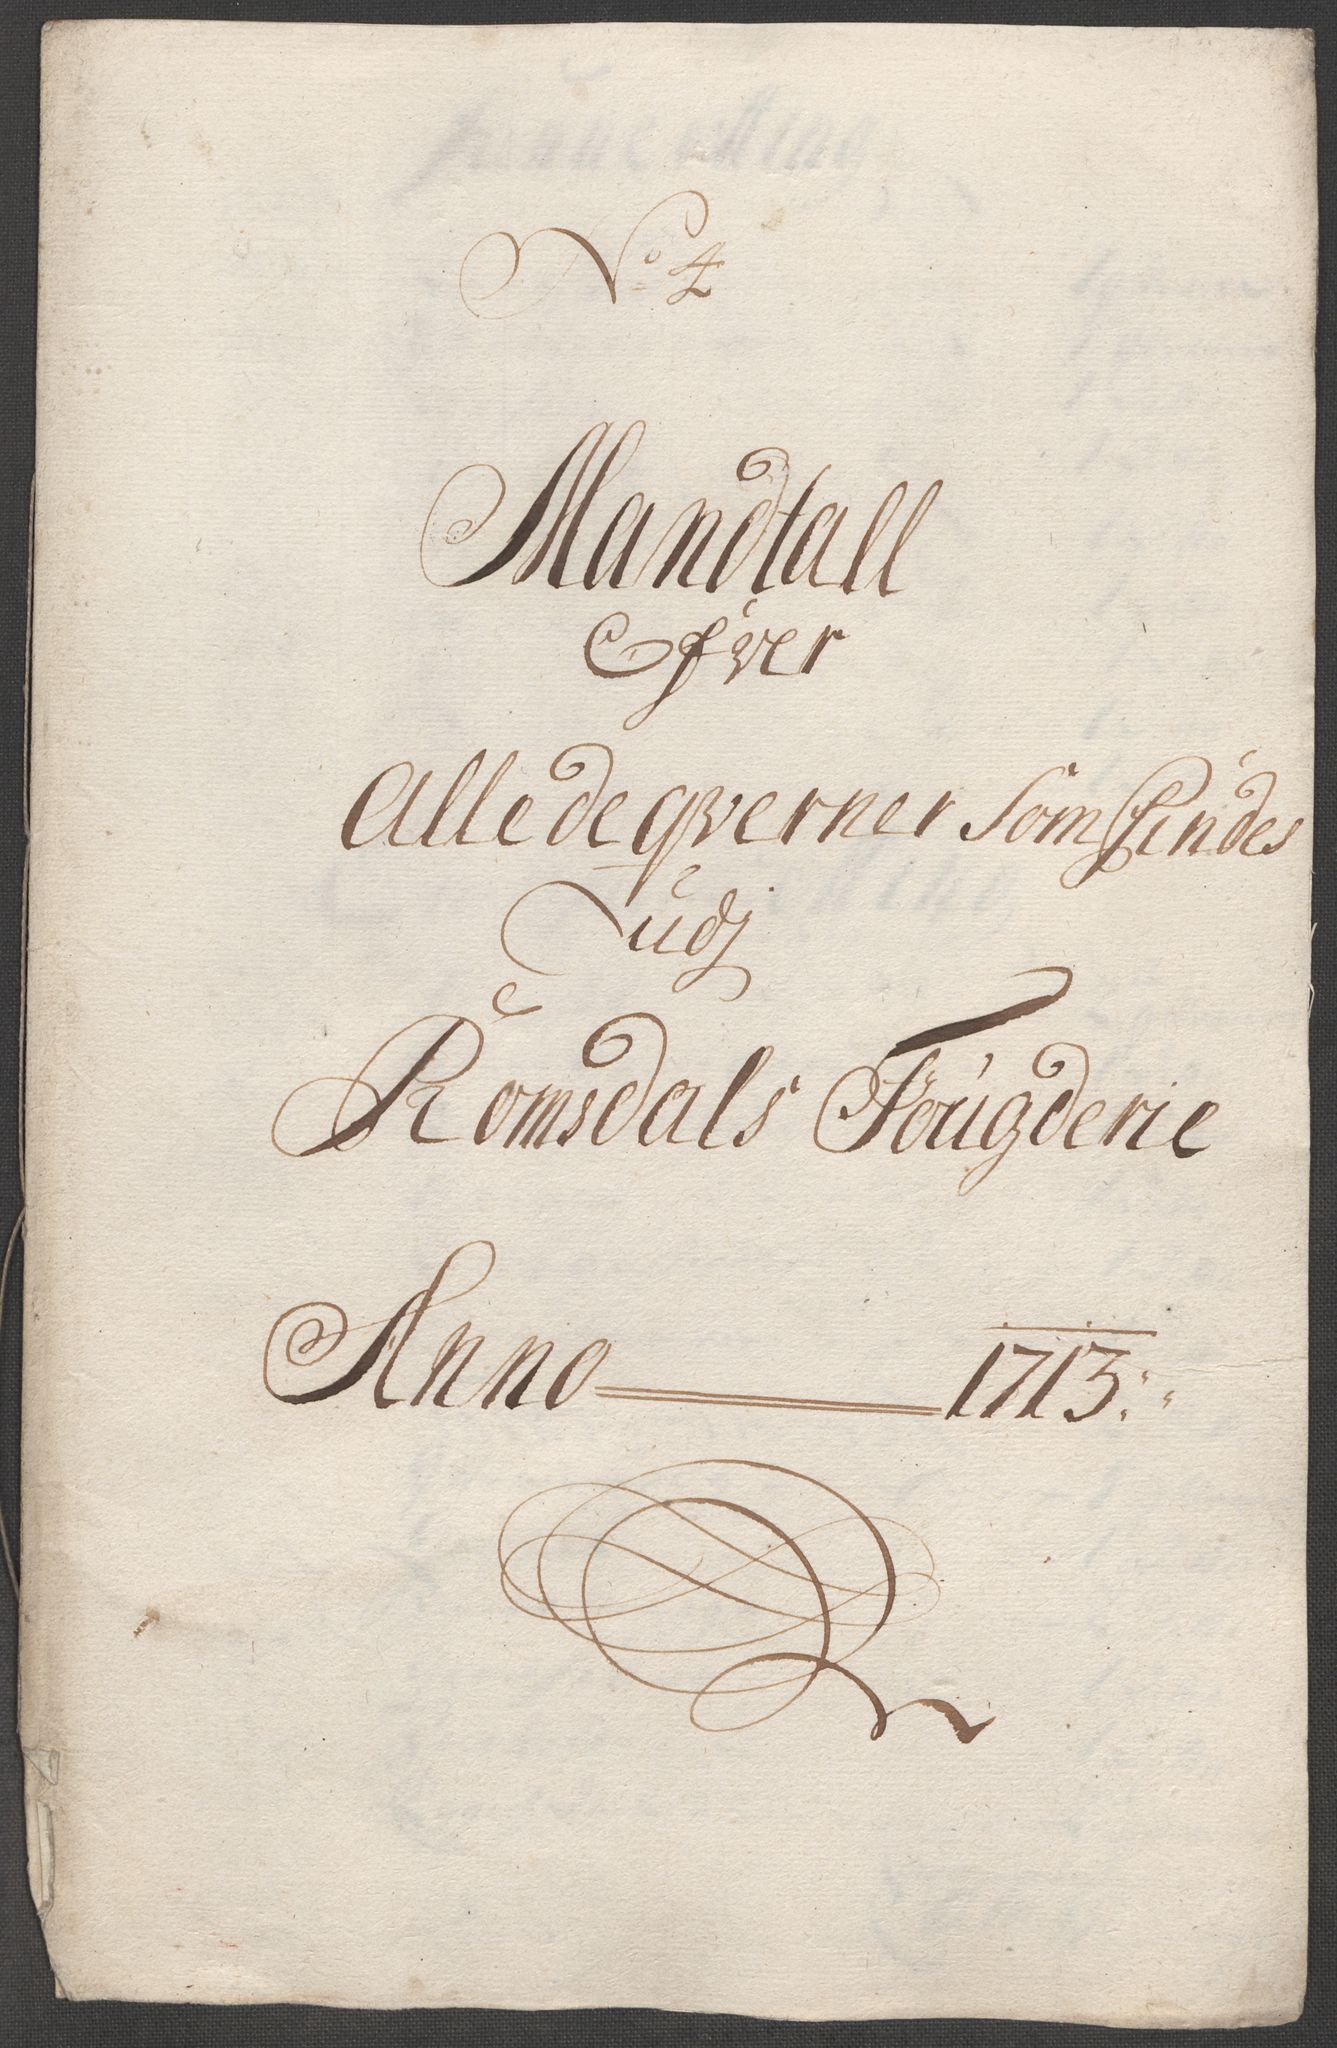 No 4
Mandtall
Ofver
Alle de qverner Som Findes
udj
Romsdals Fougderie
Anno 1713: